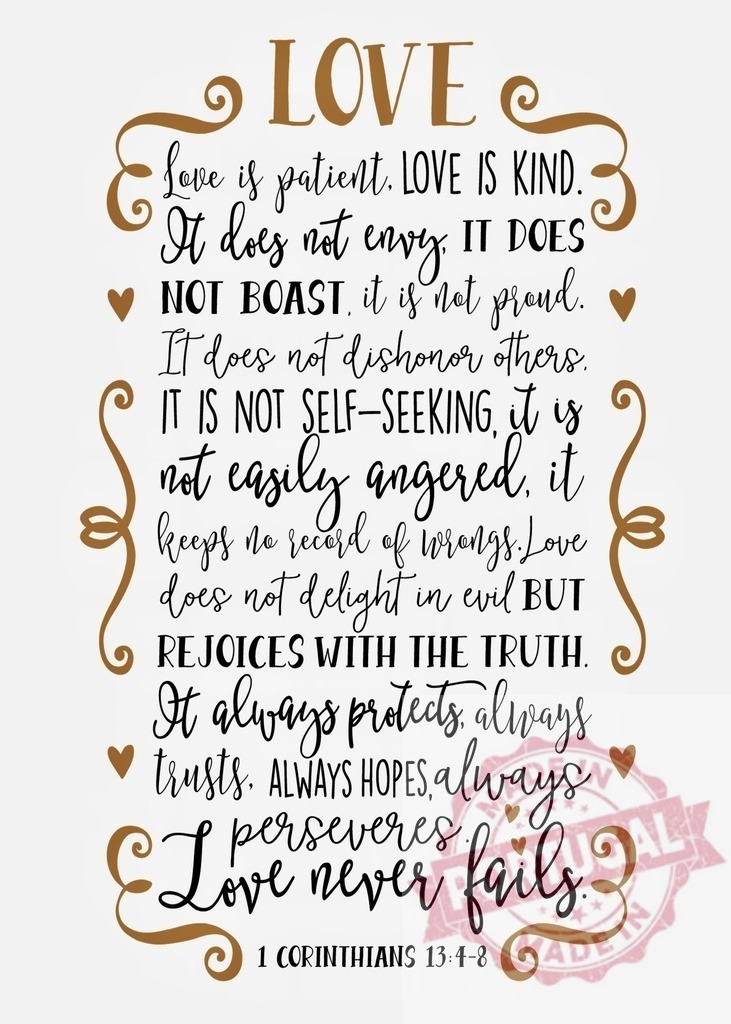 LOVE
Love is patient, LOVE IS KIND.
It does not envy, IT DOES
NOT BOAST, it is not proud.
It does not dishonor others,
IT IS NOT SELF-SEEKING, it is
not easily angered, it
keeps no record of wrongs. Love
does not delight in evil BUT
REJOICES WITH THE TRUTH.
It always protects, always
trusts, ALWAYS HOPES, always
perseveres.
Love never fails.
1 CORINTHIANS 13:4-8
MADE IN
PORTUGAL
MADE IN